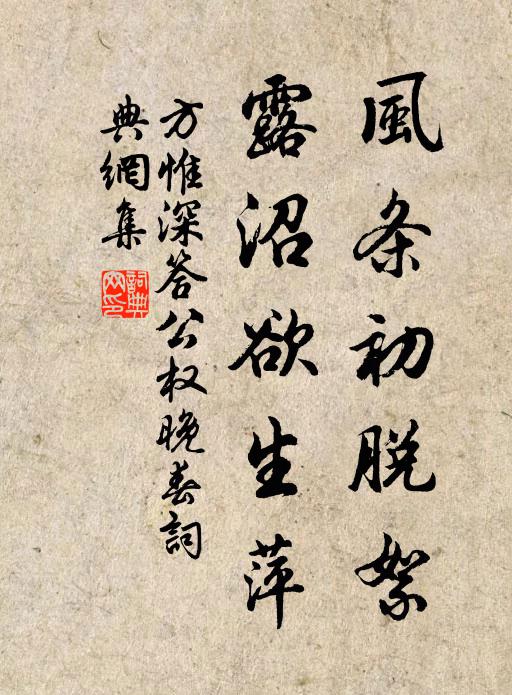 風条初脱絮
露沼欲生萍
方惟深答公权晚春詞
典網集
詞典网印